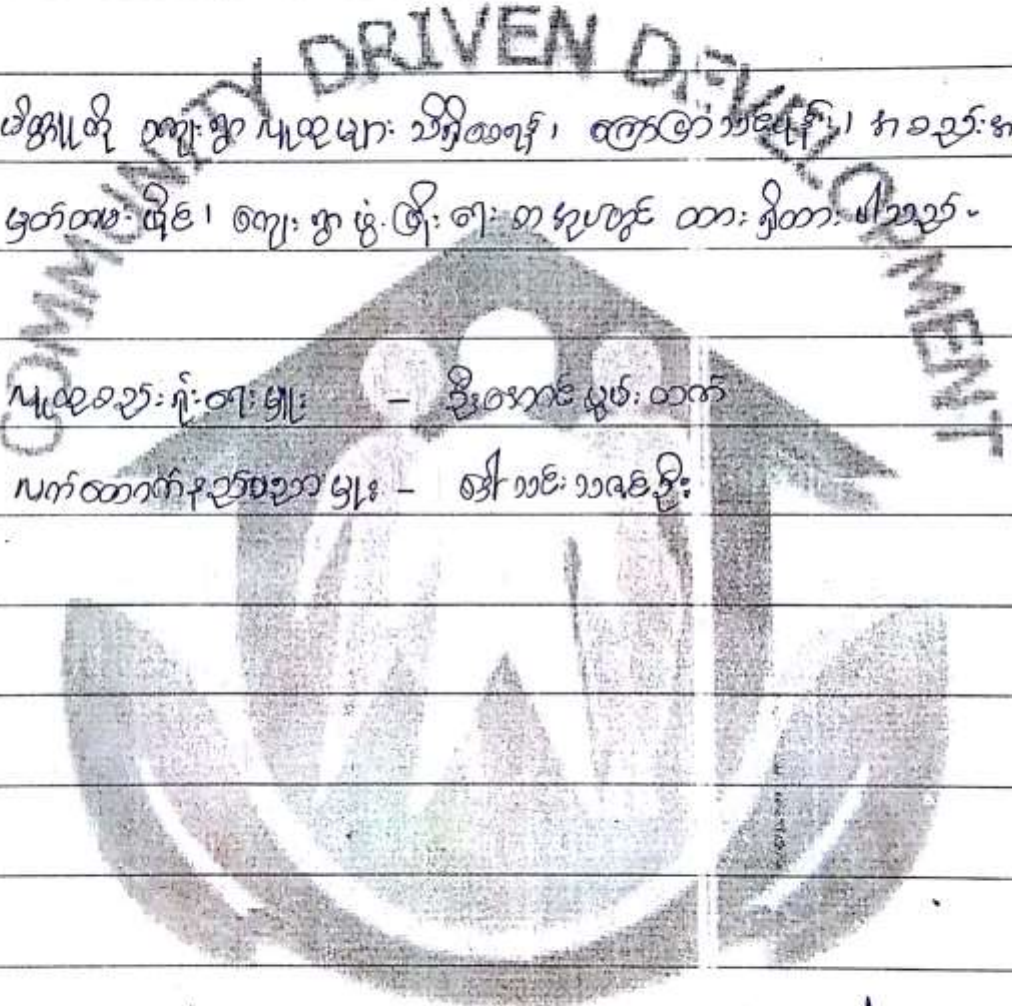 COMMUNITY DRIVEN DEVELOPMENT
ကျေးရွာ လူထုများ သိရှိစေရန်၊ ကြော်ငြာသင်ပုန်း၊ အစည်းအ
မှတ်တမ်း ဖိုင်၊ ကျေးရွာ ဖွံ့ဖြိုးရေး စာအုပ်တွင် ထားရှိထားပါသည်။
လူထုစည်းရုံးရေးမှူး - ဦးအောင်မျိုးထက်
လက်ထောက်နည်းပညာမှူး - ဒေါ်သင်းသဇင်ဦး